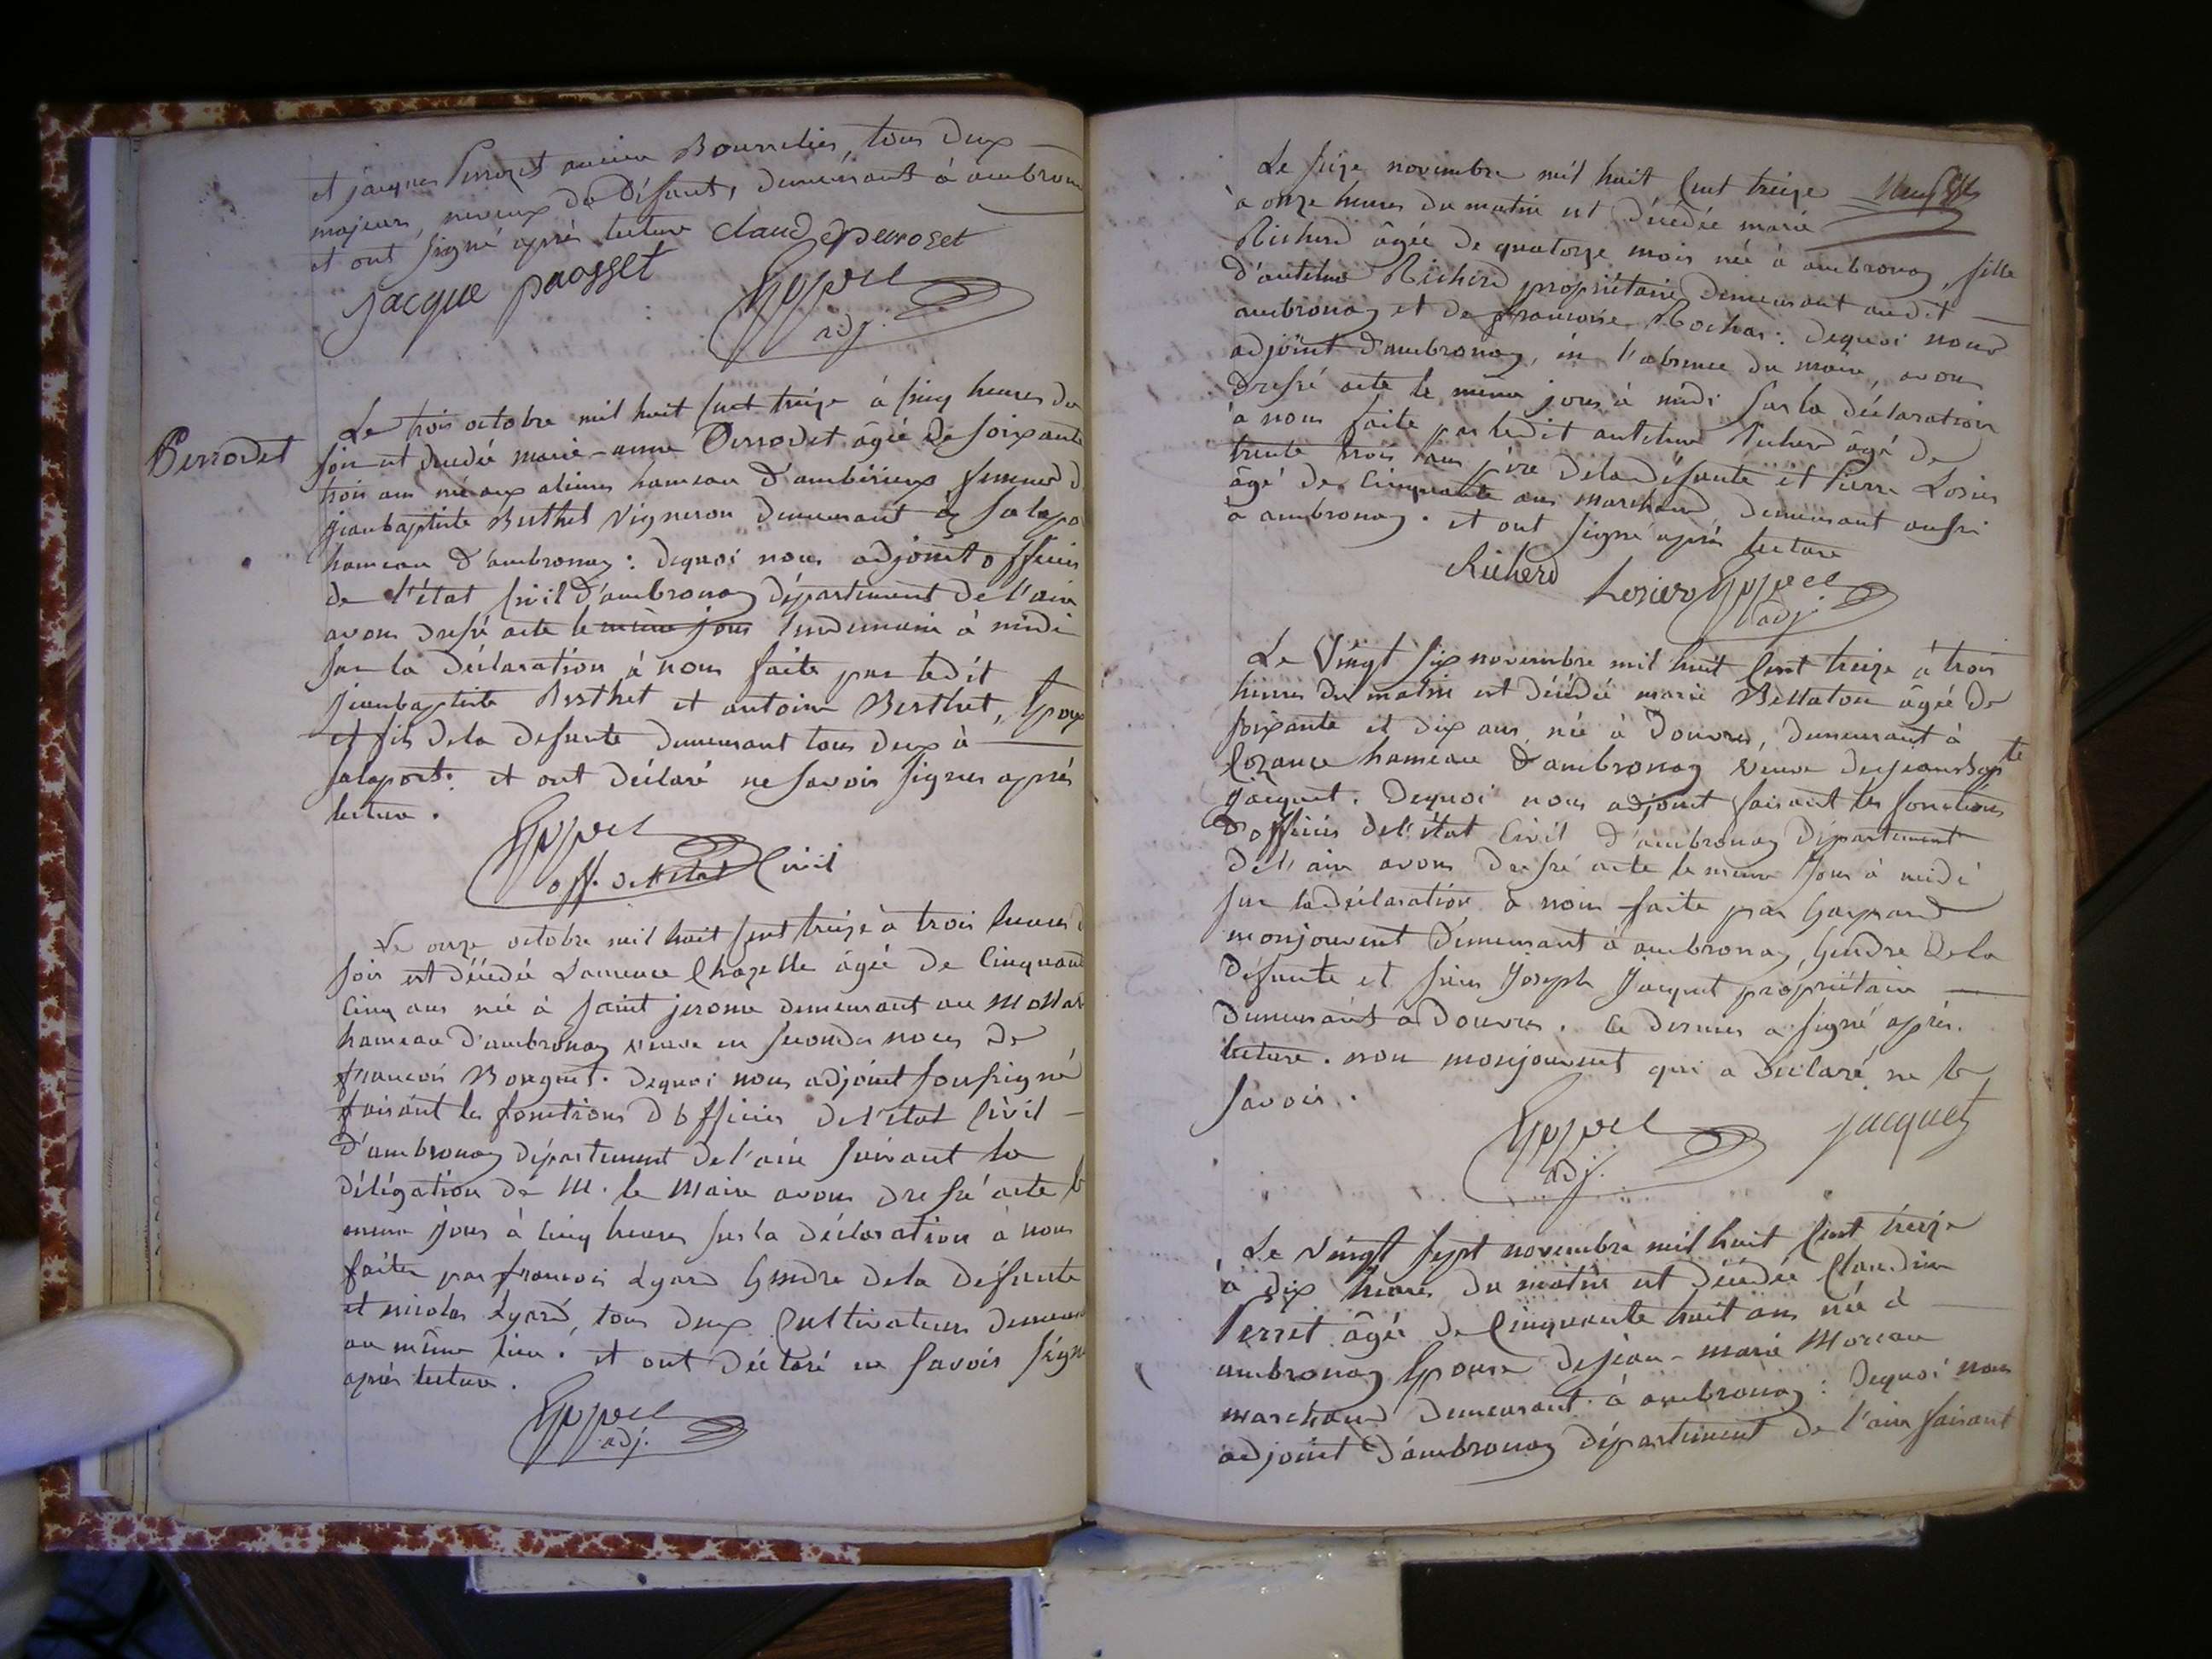 et jacques Perrozet ancien Bourrelier, tous deux
majeurs, neveux du défunt, demeurant à ambrona
et ont signé après lecture claude perroset
jacque paosset
adj.
Perrodet
Le trois octobre mil huit cent treize à cinq heures du
soir est décédée marie-anne Perrodet âgée de soixante
trois ans née aux alimes hameau d'ambérieux, femme d
jeanbaptiste Berthet vigneron demeurant à salapo
hameau d'ambronay : dequoi nous adjoint officier
de l'état civil d'ambronay département de l'ain
avons dressé acte le même jour lendemain à midi
sur la déclaration à nous faite par ledit
jeanbaptiste Berthet et antoine Berthet, Epoux
et fils dela defunte demeurant tous deux à
salaport. et ont déclaré ne savoir signer après
lecture.
off. de l'état Civil
Le onze octobre mil huit cent treize à trois heures d
soir est décédée Laurence Chazelle âgée de Cinquant
Cinq ans née à saint jerome demeurant au Mollar
hameau d'ambronay veuve en secondes noces de
françois Bouquet. dequoi nous adjoint soussigné
faisant les fonctions d'officier de l'état Civil
d'ambronay département de l'ain suivant la
délégation de M. le Maire avons dressé acte le
meme jour à cinq heures sur la déclaration à nous
faite par françois Lyard Gendre dela défunte
et nicolas Lyard, tous deux Cultivateurs demeur
au même lieu. et ont déclaré ne savoir signe
après lecture.
adj.
Le seize novembre mil huit Cent treize
à onze heures du matin est décédée marie
Richerd âgée de quatorze mois née à ambronay, fille
d'antelme Richerd propriétaire demeurant audit
ambronay et de françoise Rochas : dequoi nous
adjoint d'ambronay, en l'absence du maire, avons
dressé acte le même jour à midi sur la déclaration
à nous faite par ledit antelme Richerd âgé de
trente trois ans père dela défunte et Pierre Losier
âgé de Cinquante ans marchand demeurant aussi
à ambronay. et ont signé après lecture
Richerd Losier
adj
Le Vingt six novembre mil huit Cent treize à trois
heures du matin est décédée marie Bellaton âgée de
soixante et dix ans, née à Douvres, demeurant à
Cozance hameau d'ambronay veuve dejeanbapte
jacquet. dequoi nous adjoint faisant les fonctions
d'officier del'état Civil d'ambronay département
del'ain avons dressé acte le meme Jour à midi
sur la déclaration à nous faite par Gaspard
monjouvent demeurant à ambronay, Gendre dela
défunte et sieur Joseph Jacquet propriétaire
demeurant à Douvres. Ce dernier a signé après
lecture. non monjouvent qui a déclaré ne le
savoir.
adj. jacquet
Le vingt sept novembre mil huit Cent treize
à dix heures du matin est décédée Claudine
Perret âgée de Cinquante huit ans née à
ambronay Epouse dejean-marie Moreau
marchand demeurant à ambronay : dequoi nous
adjoint d'ambronay département de l'ain faisant